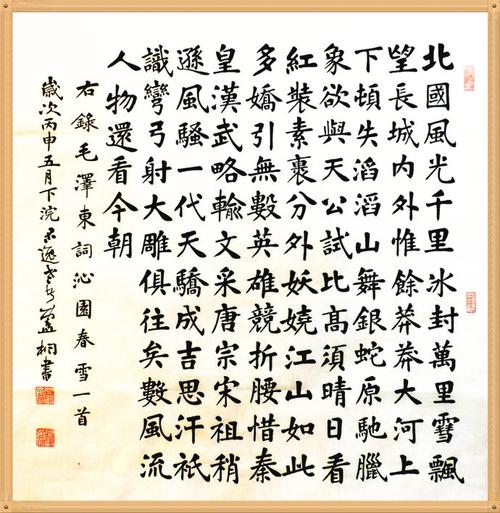 北國風光千里冰封萬里雪飄
望長城内外惟餘莽莽大河上
下頓失滔滔山舞銀蛇原馳臘
象欲與天公試比高須晴日看
紅裝素裹分外妖嬈江山如此
多嬌引無數英雄競折腰惜秦
皇漢武略輸文采唐宗宋祖稍
遜風騷一代天驕成吉思汗祇
識彎弓射大雕俱往矣數風流
人物還看今朝
右錄毛澤東詞沁園春雪一首
歲次丙申五月下浣桐書